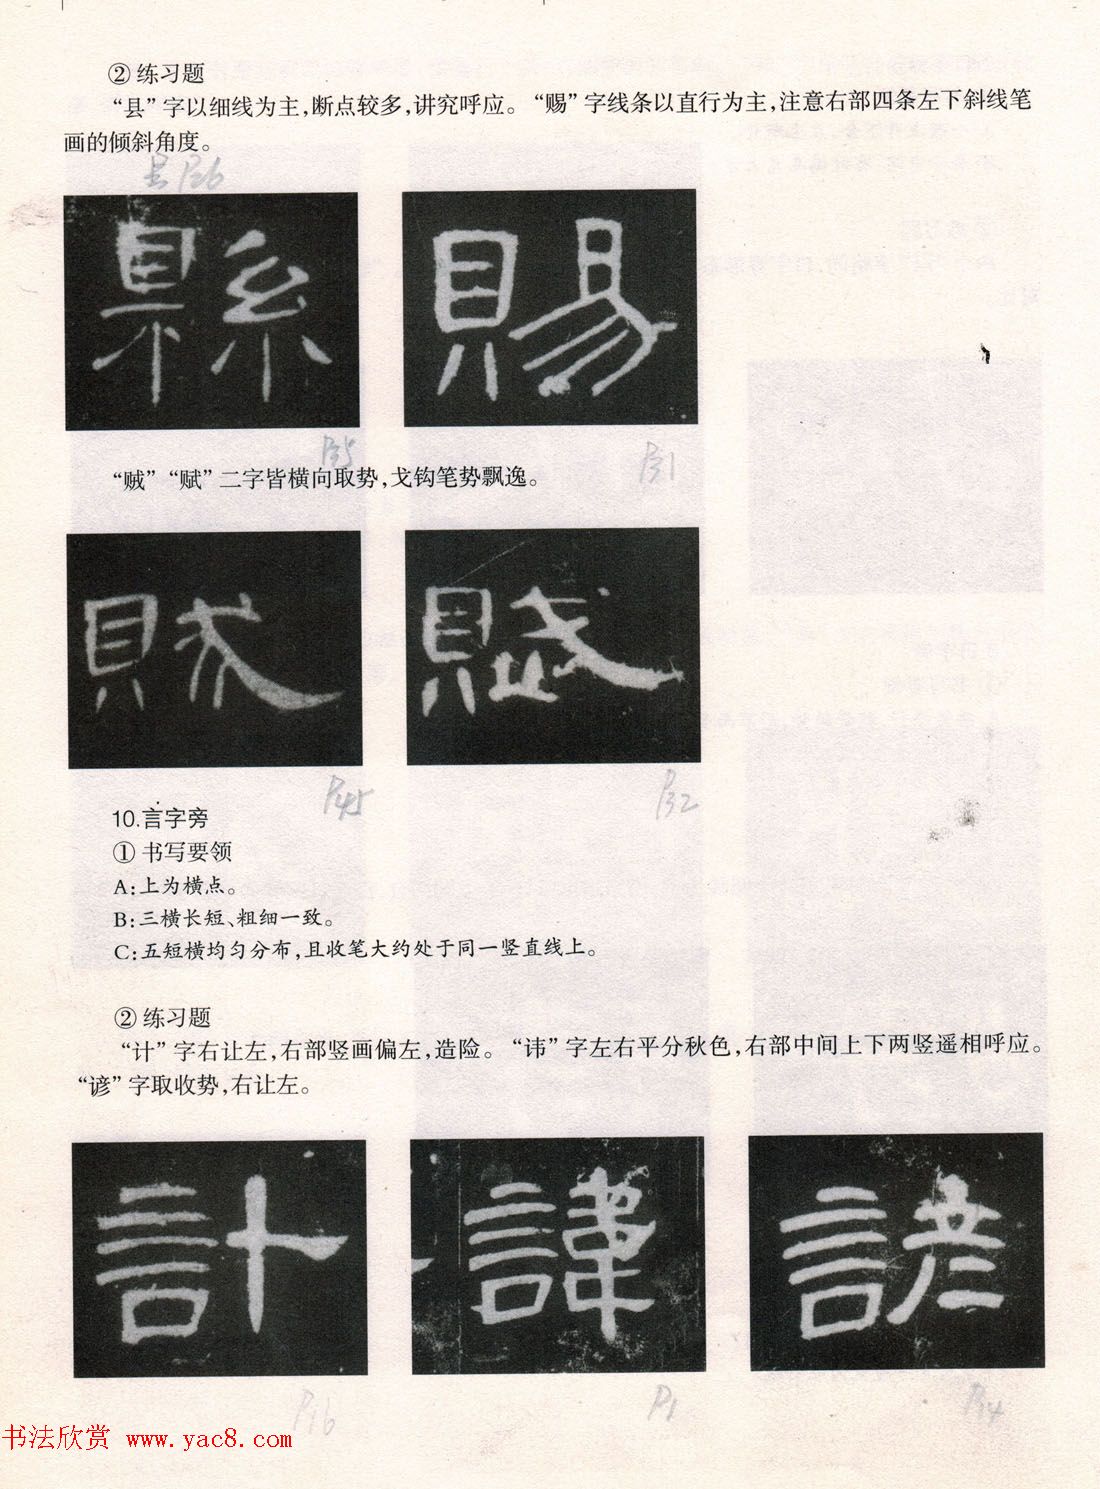 ② 练习题
“县”字以细线为主，断点较多，讲究呼应。“赐”字线条以直行为主，注意右部四条左下斜线笔
画的倾斜角度。
县 P26
縣 賜
P35 P31
“贼”“赋”二字皆横向取势，戈钩笔势飘逸。
賊 賦
P45 P32
10.言字旁
① 书写要领
A：上为横点。
B：三横长短、粗细一致。
C：五短横均匀分布，且收笔大约处于同一竖直线上。
② 练习题
“计”字右让左，右部竖画偏左，造险。“讳”字左右平分秋色，右部中间上下两竖遥相呼应。
“谚”字取收势，右让左。
計 諱 諺
P16 P1 P14
书法欣赏 www.yac8.com